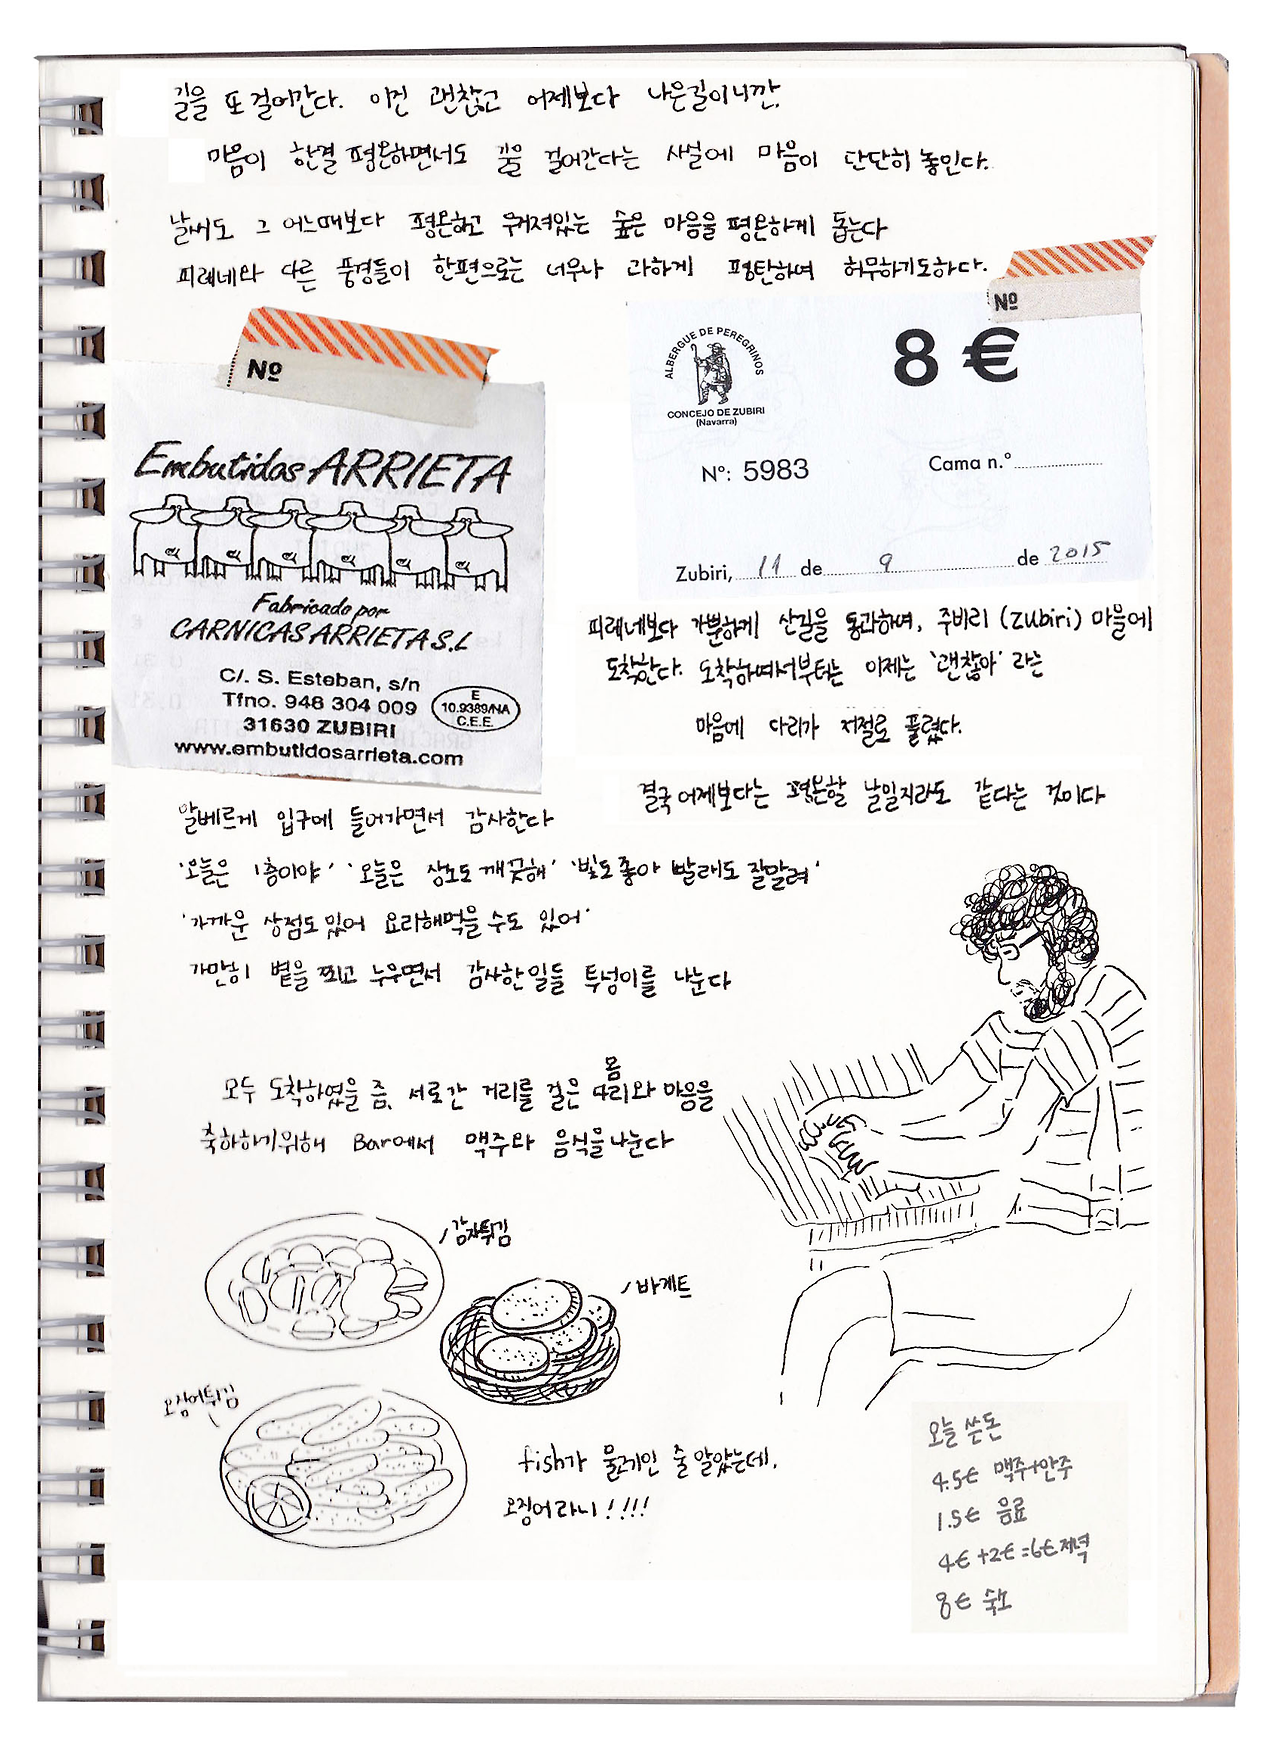 길을 또 걸어간다. 이건 괜찮고 어제보다 나은길이니깐.
마음이 한결 평온하면서도 길을 걸어간다는 사실에 마음이 단단히 놓인다.
날씨도 그 어느때보다 평온하고 우거져있는 숲은 마음을 평온하게 돕는다
피레네와 다른 풍경들이 한편으로는 너무나 과하게 평탄하여 허무하기도하다.
Nº
Nº
Embutidos ARRIETA
Fabricado por
CARNICAS ARRIETA S.L
C/. S. Esteban, s/n
Tfno. 948 304 009
31630 ZUBIRI
www.embutidosarrieta.com
E
10.9389/NA
C.E.E.
ALBERGUE DE PEREGRINOS
CONCEJO DE ZUBIRI
(Navarra)
8 €
Nº: 5983
Cama n.º
Zubiri, 11 de 9 de 2015
피레네보다 가뿐하게 산길을 통과하며, 주비리 (Zubiri) 마을에
도착한다. 도착하여서부터는 이제는 '괜찮아' 라는
마음에 다리가 저절로 풀렸다.
결국 어제보다는 평온할 날일지라도 같다는 것이다
알베르게 입구에 들어가면서 감사한다
'오늘은 1층이야' '오늘은 샤워도 깨끗해' '빛도 좋아 빨래도 잘말려'
'가까운 상점도 있어 요리해먹을 수도 있어'
가만히 볕을 쬐고 누우면서 감사한 일들 투성이를 나눈다
모두 도착하였을 즘, 서로간 거리를 걸은 몸 다리와 마음을
축하하기위해 Bar에서 맥주와 음식을 나눈다
감자튀김
바게트
오징어튀김
fish가 물고기인 줄 알았는데,
오징어라니!!!!
오늘 쓴돈
4.5€ 맥주+안주
1.5€ 음료
4€+2€=6€ 저녁
8€ 숙소